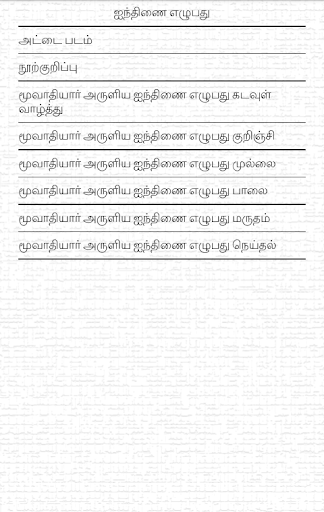 ஐந்திணை எழுபது
அட்டை படம்
நூற்குறிப்பு
மூவாதியார் அருளிய ஐந்திணை எழுபது கடவுள்
வாழ்த்து
மூவாதியார் அருளிய ஐந்திணை எழுபது குறிஞ்சி
மூவாதியார் அருளிய ஐந்திணை எழுபது முல்லை
மூவாதியார் அருளிய ஐந்திணை எழுபது பாலை
மூவாதியார் அருளிய ஐந்திணை எழுபது மருதம்
மூவாதியார் அருளிய ஐந்திணை எழுபது நெய்தல்